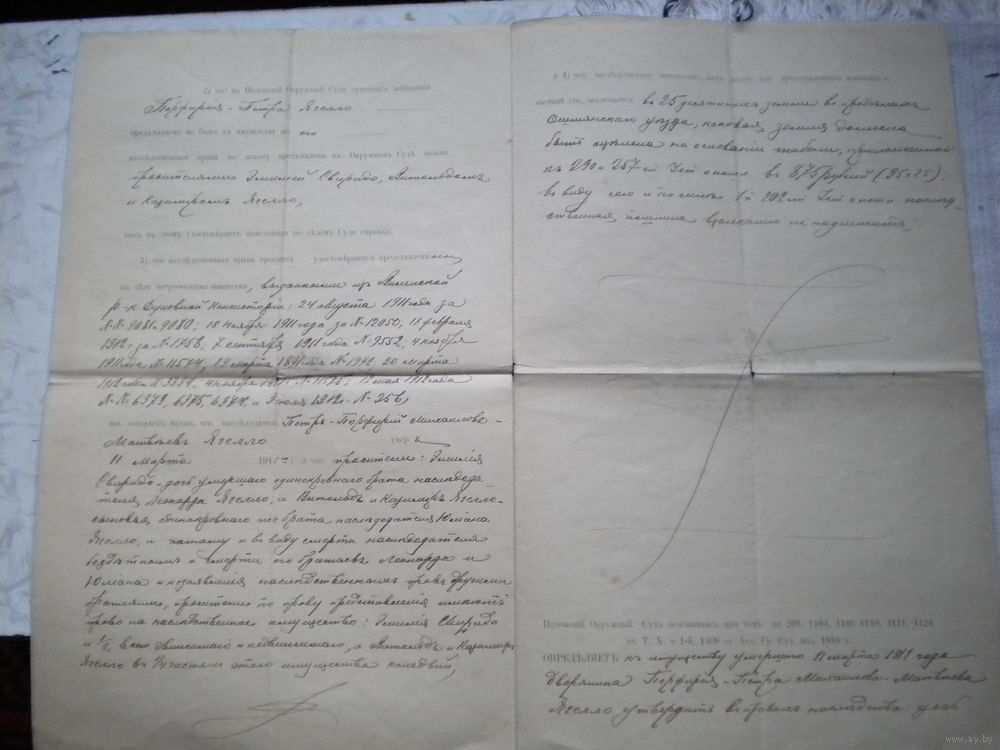 2) что въ Виленскій Окружный Судъ духовнаго завѣщанія
Порфирія-Петра Ягелло
предъявлено не было, къ имуществу же его
наслѣдственныя права по закону предъявлены въ Окружномъ Судѣ только
просителями Эмиліей Свиридо, Витольдомъ
и Казимиромъ Ягелло,
какъ въ этомъ удостовѣряетъ наведенная по дѣламъ Суда справка;
3) что наслѣдственныя права просител удостовѣряются представленными
къ дѣлу метрическими выписями, выданными изъ Виленской
р.-к. Духовной Консисторіи: 24 августа 1911 года за
№№ 9081 и 9080; 18 ноября 1911 года за № 12050, 17 февраля
1912 г. за № 1758, 7 сентября 1911 года № 9552, 4 ноября
1911 года № 11574, 19 марта 1891 года № 1972, 20 марта
1912 года № 3334, 4 ноября 1911 г. № 11575; 17 мая 1912 года
№№ 6373, 6375, 6374, и 3 іюля 1912 г. № 256,
изъ которыхъ видно, что наслѣдодатель Петръ-Порфирій Михаиловъ-
Матвѣевъ Ягелло умер
11 марта 191 г. и что просители: Эмилія
Свиридо-дочь умершаго единокровнаго брата наслѣдода-
теля Леонарда Ягелло, а Витольдъ и Казимиръ Ягелло-
сыновья единокровнаго же брата наслѣдодателя Юліана
Ягелло, и потому и въ виду смерти наслѣдодателя
бездѣтнымъ и смерти его братьевъ Леонарда и
Юліана и незаявленія наслѣдственныхъ правъ другими
братьями, просители по праву представленія имѣютъ
право на наслѣдственное имущество: Эмилія Свиридо
въ 1/2 всего движимаго и недвижимаго, а Витольдъ и Казимиръ
Ягелло въ 1/4 частяхъ этого имущества каждый;
и 4) что наслѣдственное имущество, какъ видно изъ представленнаго
составѣ его, заключается въ 25 десятинахъ земли въ предѣлахъ
Ошмянскаго уѣзда, каковая земля должна
быть оцѣнена на основаніи табели, приложенной
къ 290 и 257 ст. Уст. о пошл. въ 875 рублей (35×25).
въ виду сего и по силѣ 1 п. 202 ст. Уст. о пошл. наслѣд-
ственная пошлина взысканію не подлежитъ,
Виленскій Окружный Судъ основываясь при томъ на 209, 1104, 1105 1110, 1111, 1124
ст. Т. X. ч 1-й, 1408 ст. Уст. Гр. Суд. изд. 1883 г.
ОПРЕДѢЛЯЕТЪ: къ имуществу умершаго 11 марта года
дворянина Порфирія-Петра Михаилова-Матвѣева
Ягелло утвердить въ правахъ наслѣдства: дочь
www.ay.by